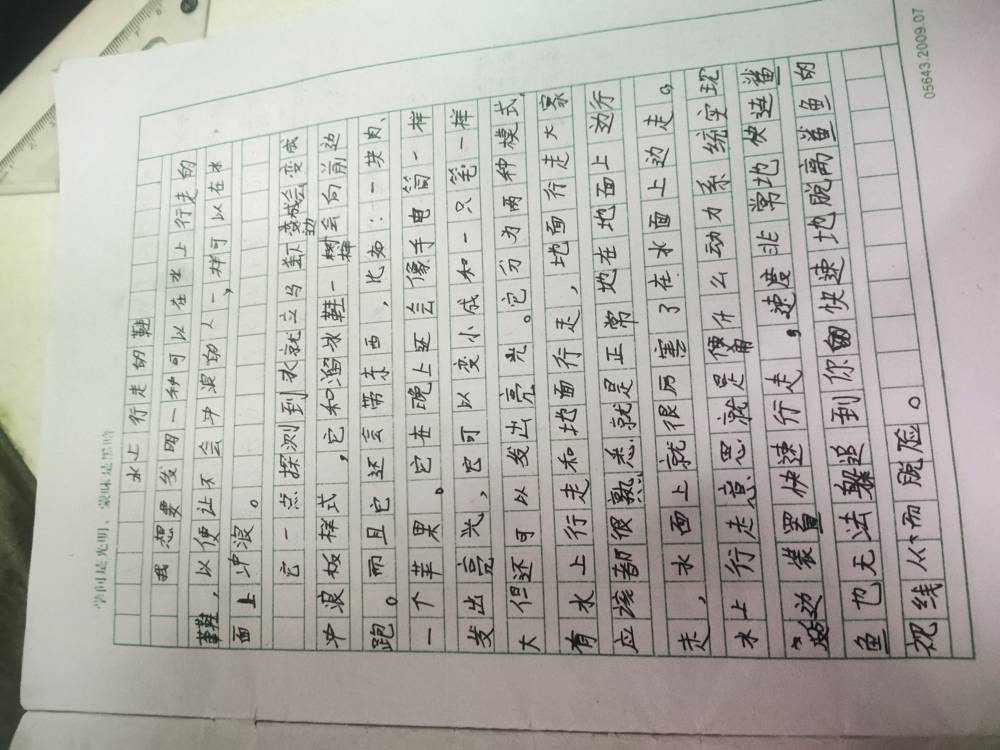 学问是光明，蒙昧是黑暗
水上行走的鞋
我想要发明一种可以在水上行走的
鞋，以便让不会冲浪的人，一样可以在水
面上冲浪。
它一点探测到水就立马变成
冲浪板样式，它和溜冰鞋一样会向前边
跑。而且它还会带东西，比如：一块肉、
一个苹果。它在晚上还会像手电筒一样
发出亮光，它可以变小成和一只笔一样
大但还可以发出亮光。它分为两种模式，
有水上行走和地面行走，地面行走大家
应该都很熟悉就是正常地在地面上边行
走，水面上就很厉害了在水面上边走。
水上行走意思就是使用什么动力系统实现
边装置快速行走，速度非常地快连鲨
鱼也无法躲追到你的快速地脱离鲨鱼的
视线从而脱险。
05643.2009.07